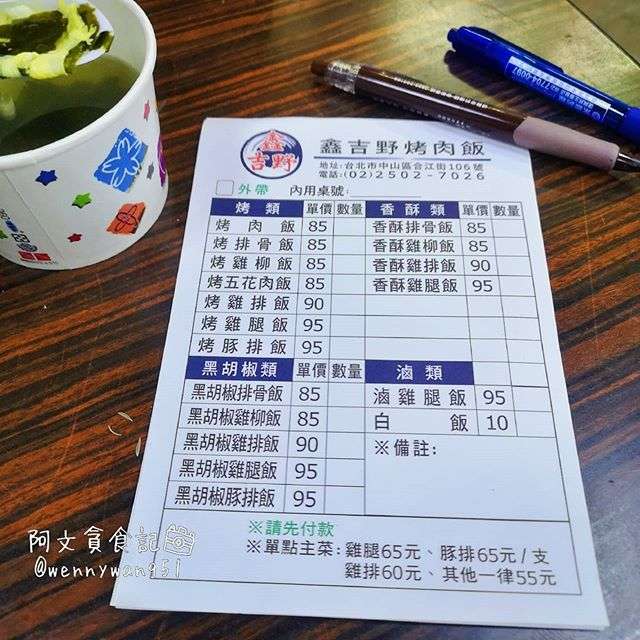 鑫
吉野
鑫吉野烤肉飯
地址:台北市中山區合江街106號
電話:(02)2502-7026
外帶 內用桌號:
烤類 單價 數量 香酥類 單價 數量
烤肉飯 85 香酥排骨飯 85
烤排骨飯 85 香酥雞柳飯 85
烤雞柳飯 85 香酥雞排飯 90
烤五花肉飯 85 香酥雞腿飯 95
烤雞排飯 90
烤雞腿飯 95
烤豚排飯 95
黑胡椒類 單價 數量 滷類
黑胡椒排骨飯 85 滷雞腿飯 95
黑胡椒雞柳飯 85 白飯 10
黑胡椒雞排飯 90 ※備註:
黑胡椒雞腿飯 95
黑胡椒豚排飯 95
※請先付款
※單點主菜:雞腿65元、豚排65元/支
雞排60元、其他一律55元
阿文貪食記
@wennywang51